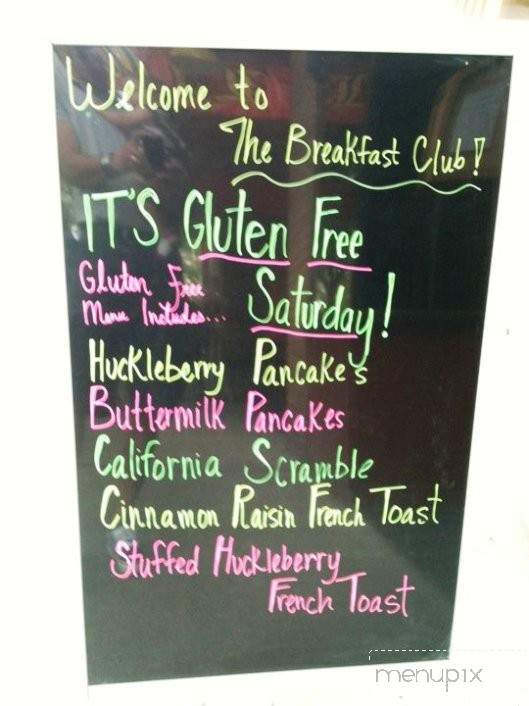 Welcome to
The Breakfast Club!
IT'S Gluten Free
Gluten Free
Menu Includes...
Saturday!
Huckleberry Pancakes
Buttermilk Pancakes
California Scramble
Cinnamon Raisin French Toast
Stuffed Huckleberry
French Toast
menupix